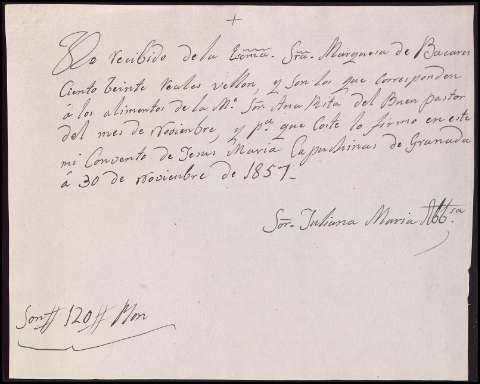 +
He recibido de la Esc̃m̃a. Sr̃a. Marquesa de Bacares
Ciento beinte reales vellon, y son los que corresponden
á los alimentos de la M.e Sor. Ana Rita del Buen pastor
del mes de Noviembre, y p.a que Coste lo firmo en este
mi Convento de Jesus Maria Capuchinas de Granada
á 30 de Noviembre de 1857.
Sor. Juliana Maria Abb.sa
Son # 120 # Vlon